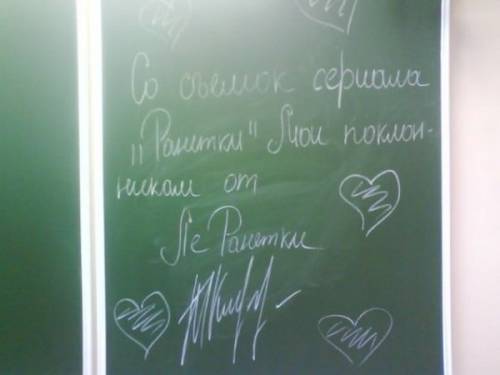 Со съемок сериала
"Ранетки" Мои поклон-
никам от
Ле Ранетки